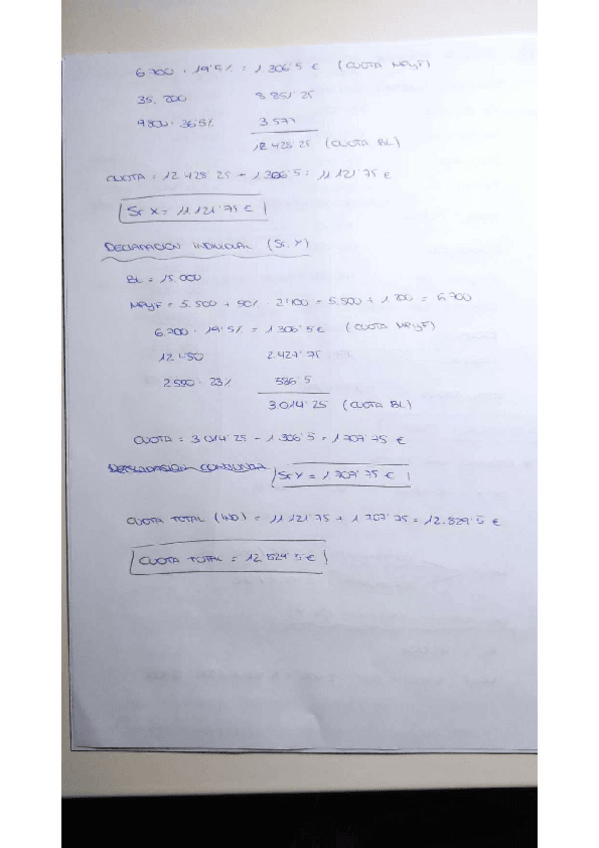 6.700 · 19'5% = 1.306'5 € (CUOTA MPyF)
35.200 8.851'25
9800 · 36'5% 3.577
12.428'25 (CUOTA BL)
CUOTA = 12.428'25 - 1.306'5 = 11.121'75 €
Sr X = 11.121'75 €
DECLARACIÓN INDIVIDUAL (Sr. Y)
BL = 15.000
MPyF = 5.500 + 50% · 2'400 = 5.500 + 1.200 = 6.700
6.700 · 19'5% = 1.306'5 € (CUOTA MPyF)
12.450 2.427'75
2.550 · 23% 586'5
3.014'25 (CUOTA BL)
CUOTA = 3.014'25 - 1.306'5 = 1.707'75 €
DECLARACIÓN CONJUNTA Sr Y = 1.707'75 €
CUOTA TOTAL (IND) = 11.121'75 + 1.707'75 = 12.829'5 €
CUOTA TOTAL = 12.829'5 €